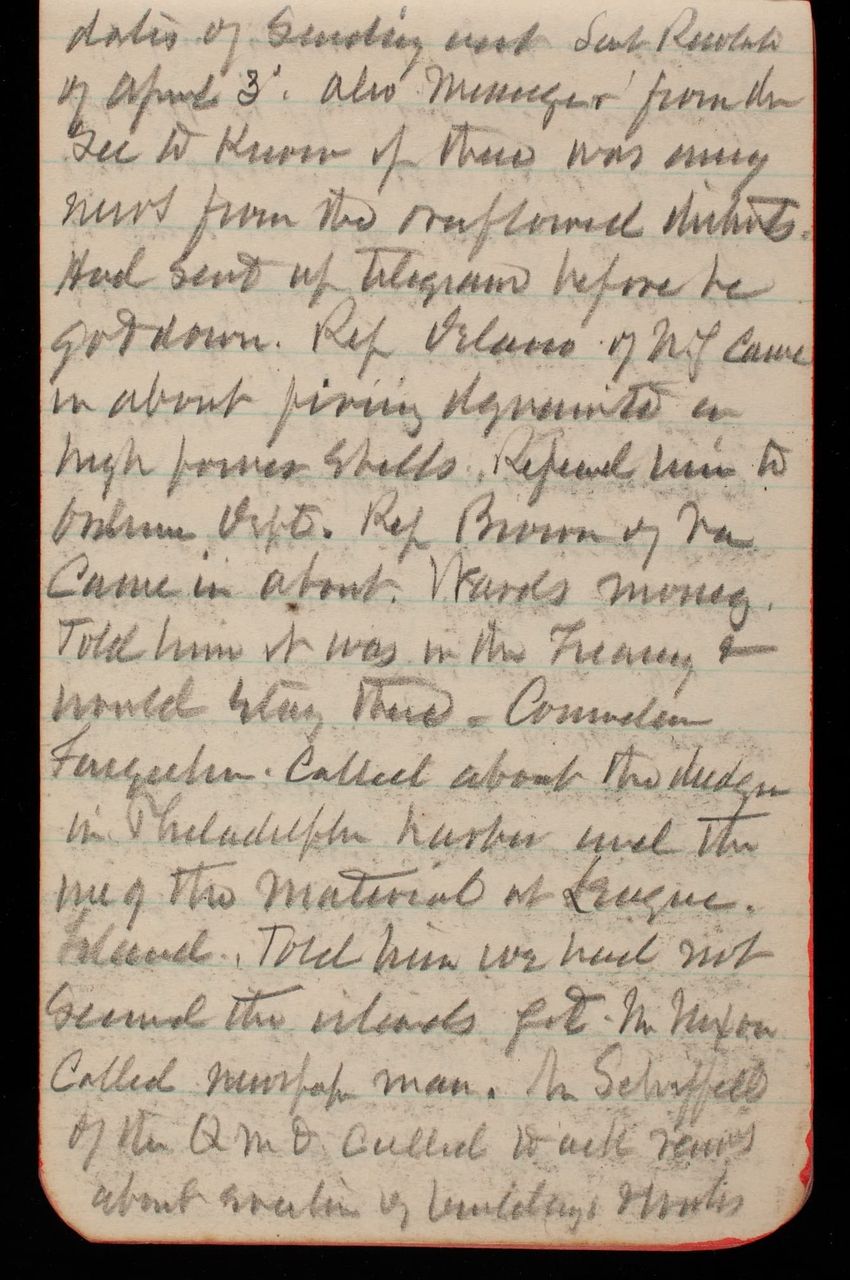 dates of sending out Sent
of April 3d. also Messenger from the
Sec to Know if there was any
news from the overflowed districts.
Had sent up telegram before he
got down. Rep of N.J came
in about firing dynamite in
high power shells. Refered him to
Dept. Rep Brown of Va
Came in about. Wards money.
Told him it was in the Treasury &
would stay there - Commodore
Farquhar. Called about the dredgn
in Philadelphia harbor and the
use of the Material at League.
Island. Told him we had not
secured the islands yet. Mr Nixon
Called newspap man. Mr
of the Q M D called to ask
about of buildings